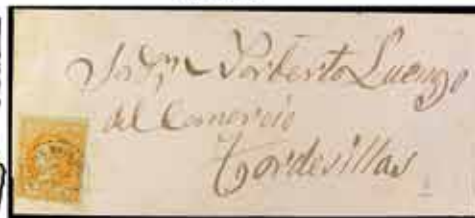 Sor Dn Norberto Luengo
del Comercio
Tordesillas